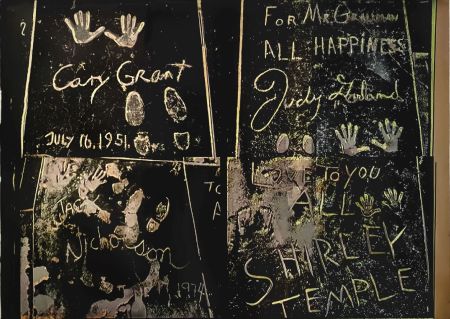 Cary Grant
JULY 16, 1951.
FOR MR GRAUMAN
ALL HAPPINESS
Judy Garland
JACK
Nicholson
1974
TO
A
LOVE TO YOU
ALL
SHIRLEY
TEMPLE